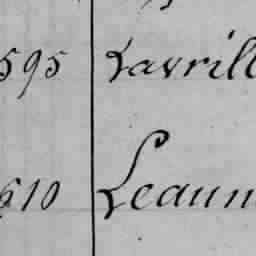 595 Lavrill
610 Leaun